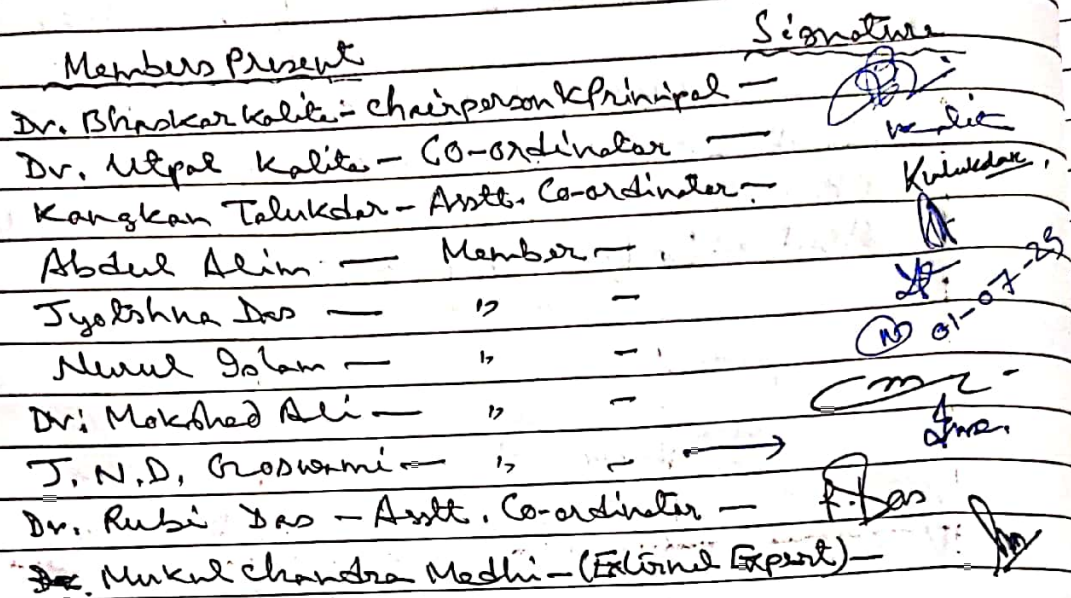 Members Present Signature
Dr. Bhaskar Kalita - Chairperson & Prinipal -
Dr. Utpal Kalita - Co-ordinator - Kalita
Kangkan Talukdar - Asstt. Co-ordinator - Ktalukdar.
Abdul Alim - Member -
Jyotshna Das - " -
Nurul Islam - " - N 01-07-23
Dr. Mokshed Ali - " -
J. N. D. Goswami - " - →
Dr. Rubi Das - Asstt. Co-ordinator - R. Das
Mukul Chandra Medhi - (External Expert) -